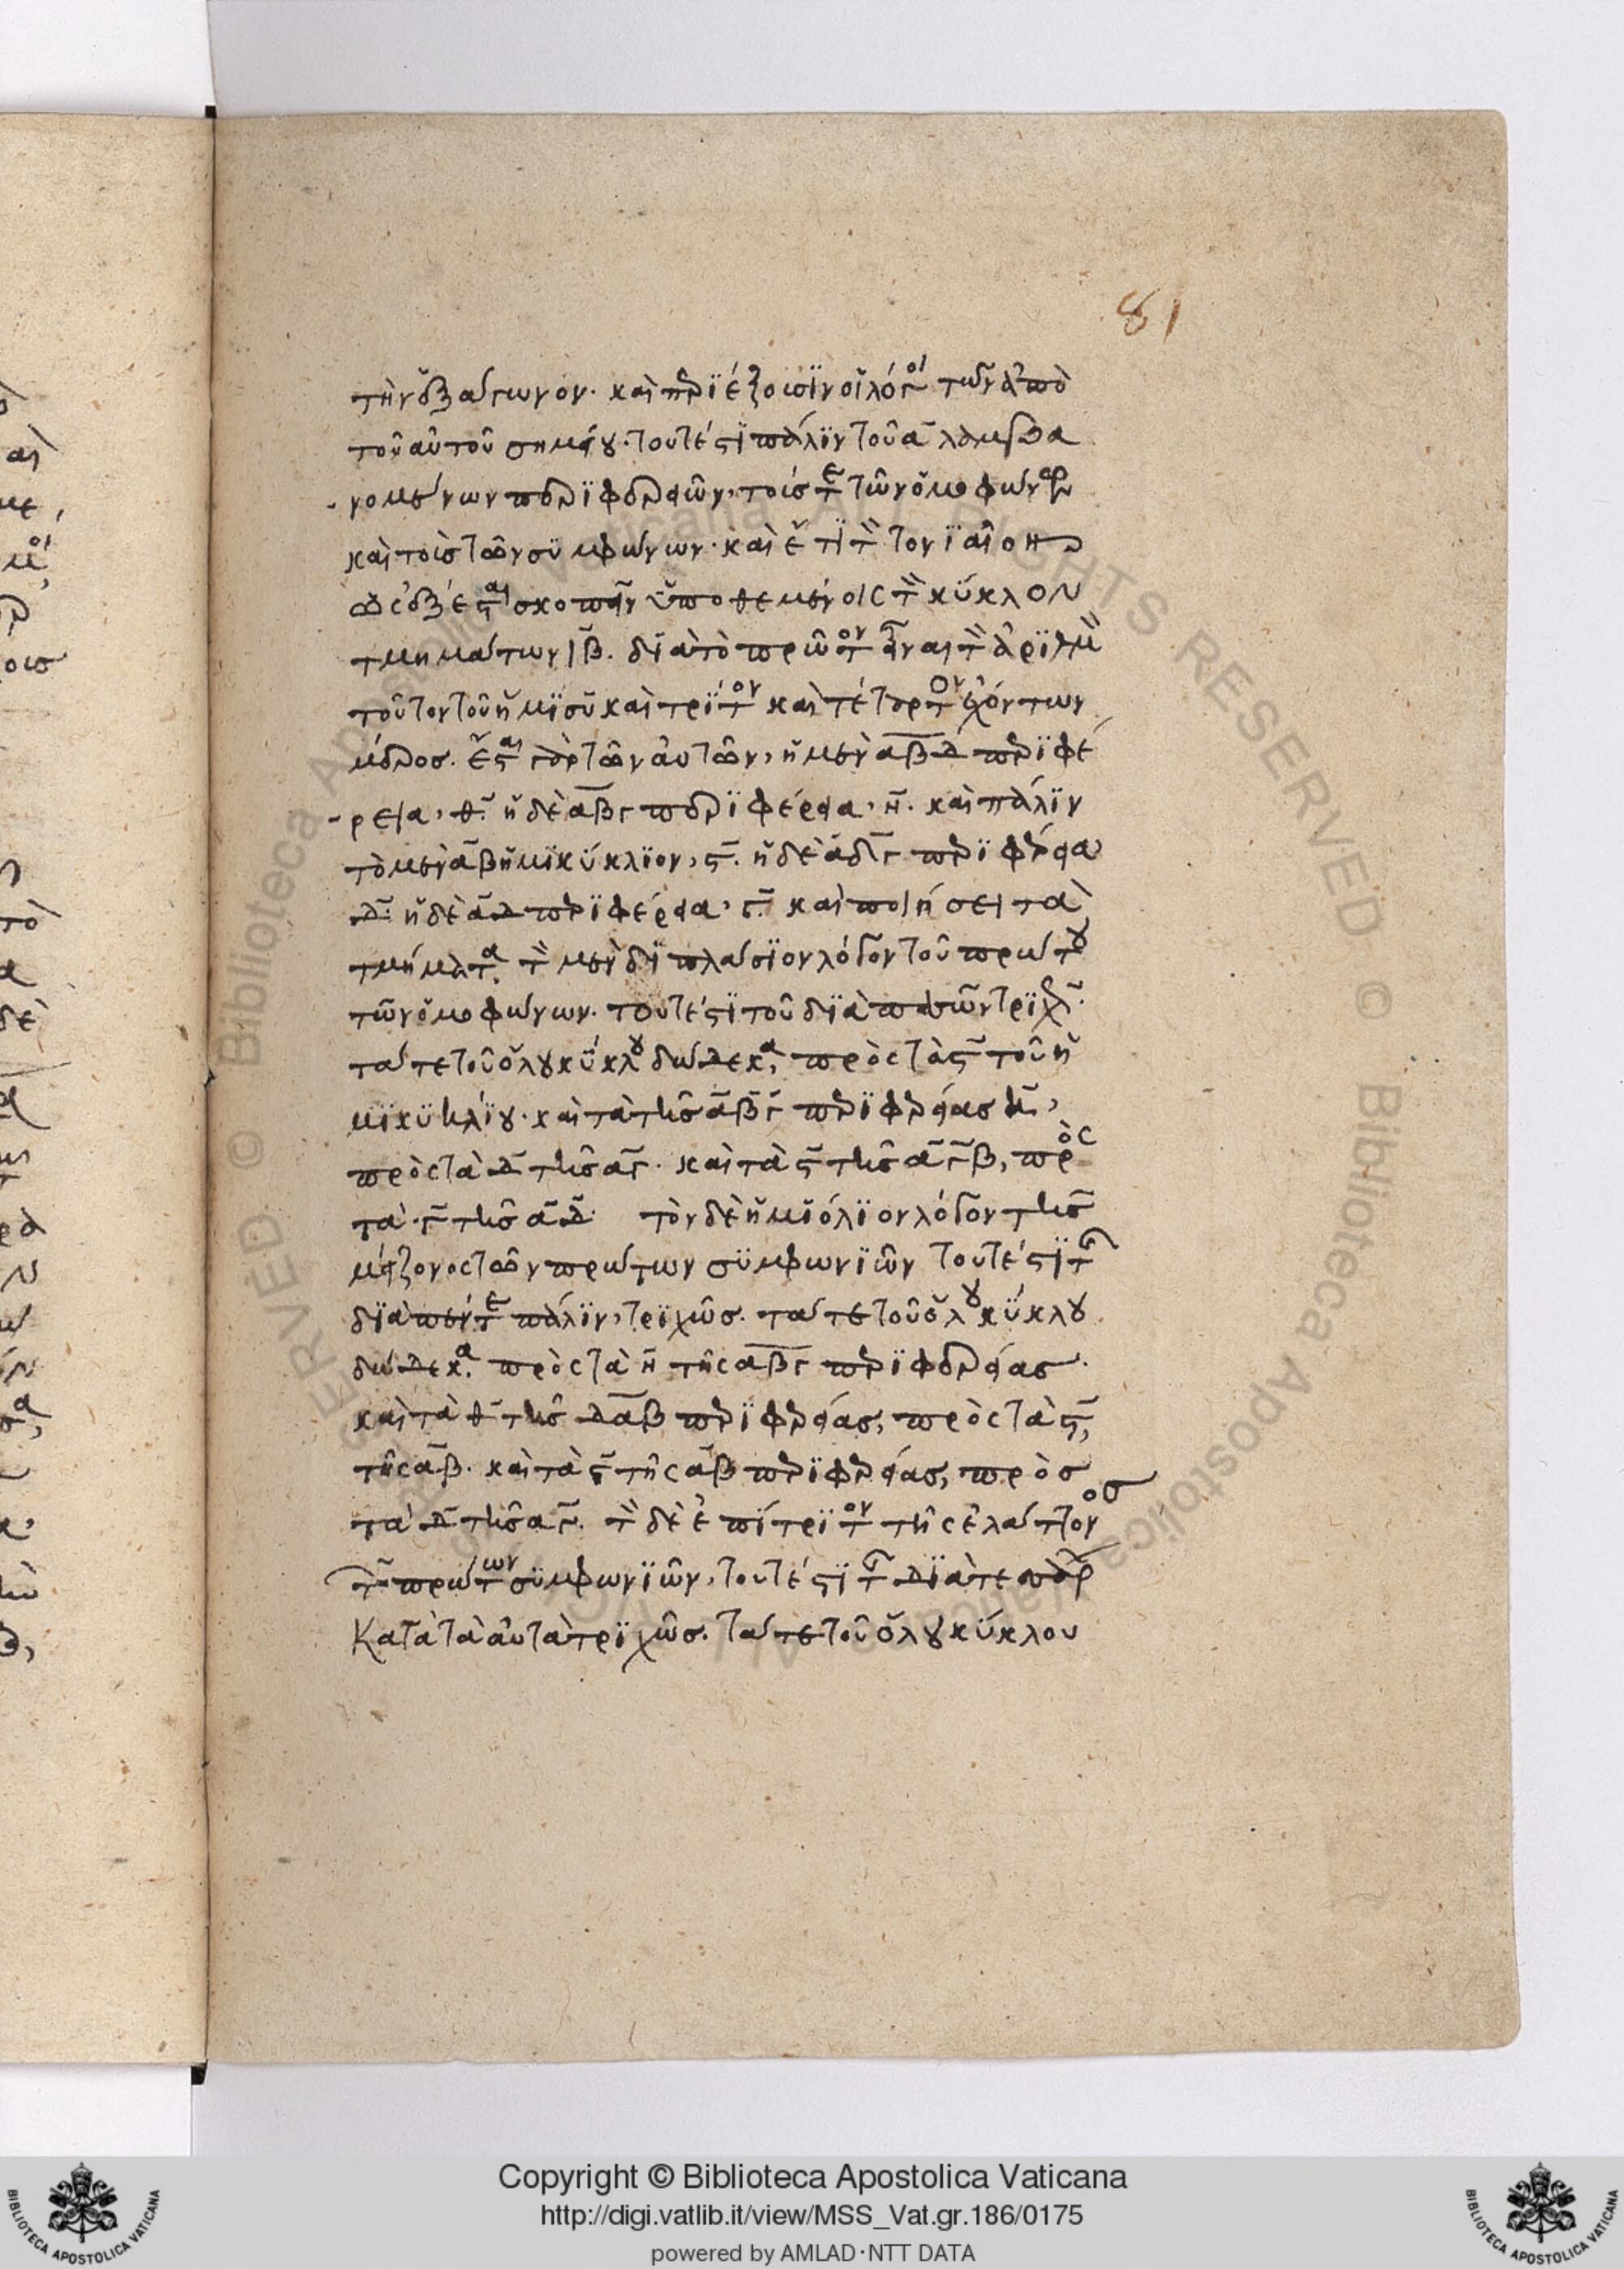 81
τὴν ἑξαγώνον. καὶ περιέξουσιν οἱ λόγοι τῶν ἀπὸ
τοῦ αὐτοῦ σημείου. τουτέστι πάλιν τοῦ α λαμβα
νομένων περιφερειῶν, τούς τε τῶν ὁμοφώνων
καὶ τοὺς τῶν συμφώνων. καὶ ἔτι τὸν τονιαῖον
ὡς ἐξέσται σκοπεῖν ὑποθεμένοις τὸν κύκλον
τμημάτων ιβ. διὰ τὸ πρῶτον εἶναι τὸν ἀριθμὸν
τοῦτον τοῦ ἥμισυ καὶ τρίτον καὶ τέταρτον ἐχόντων
μέρος. ἔσται γὰρ τῶν αὐτῶν, ἡ μὲν αβδ περιφέ
ρεια, θ. ἡ δὲ αβγ περιφέρεια, η. καὶ πάλιν
τὸ μὲν αβ ἡμικύκλιον, ς. ἡ δὲ αδγ περιφέρεια
δ. ἡ δὲ αδ περιφέρεια, γ. καὶ ποιήσει τὰ
τμήματα τὸν μὲν διπλάσιον λόγον τοῦ πρώτου
τῶν ὁμοφώνων. τουτέστι τοῦ διὰ πασῶν τριχῶς.
τά τε τοῦ ὅλου κύκλου δώδεκα, πρὸς τὰ ς τοῦ ἡ
μικυκλίου. καὶ τὰ τῆς αβγ περιφερείας η,
πρὸς τὰ δ τῆς αγ. καὶ τὰ ς τῆς αγβ, πρὸς
τὰ γ τῆς αδ. τὸν δὲ ἡμιόλιον λόγον τῆς
μείζονος τῶν πρώτων συμφωνιῶν τουτέστι τῆς
διὰ πέντε πάλιν, τριχῶς. τά τε τοῦ ὅλου κύκλου
δώδεκα πρὸς τὰ η τῆς αβγ περιφερείας.
καὶ τὰ θ τῆς δαβ περιφερείας, πρὸς τὰ ς,
τῆς αβ. καὶ τὰ ς τῆς αβ περιφερείας, πρὸς
τὰ δ τῆς αγ. τὸν δὲ ἐπίτριτον τῆς ἐλάττονος
τῶν πρώτων συμφωνιῶν, τουτέστι τῆς διὰ τεσσάρων
κατὰ τὰ αὐτὰ τριχῶς. τά τε τοῦ ὅλου κύκλου
Copyright © Biblioteca Apostolica Vaticana
http://digi.vatlib.it/view/MSS_Vat.gr.186/0175
powered by AMLAD·NTT DATA